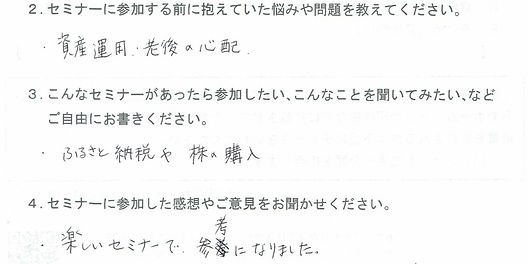 2. セミナーに参加する前に抱えていた悩みや問題を教えてください。
・資産運用・老後の心配
3. こんなセミナーがあったら参加したい、こんなことを聞いてみたい、など
ご自由にお書きください。
・ふるさと納税や 株の購入
4. セミナーに参加した感想やご意見をお聞かせください。
・楽しいセミナーで、参考になりました。